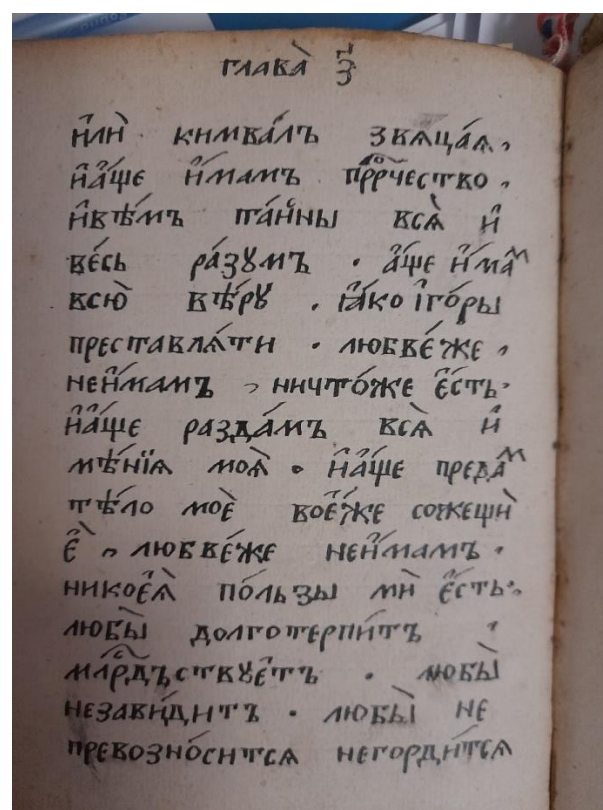 глава̀ з҃
и҆лѝ кимва́лъ звяца́ѧ,
и҆а҆́ще и҆́мамъ прⷪ҇рчество,
и҆вѣ́мъ та̑йны всѧ̀ и҆
ве́сь ра́зꙋмъ . а҆́ще и҆́маⷨ
всю̀ вѣ́рꙋ . ꙗ҆́ко і҆го́ры
преставлѧ́ти . любве́же ,
неи҆́мамъ , ничто́же є҆́сть.
и҆а҆́ще разда́мъ всѧ̀ и҆
мѣ́нїѧ моѧ̀ . и҆а҆́ще предаⷨ
тѣ́ло моѐ воє҆́же сожещѝ
є҆̀ , любве́же неи҆́мамъ .
никоеѧ̀ по́льзы мѝ є҆́сть.
любы̀ долготерпи́тъ ,
млⷭ҇рдъствꙋетъ . любы̀
незави́дитъ . любы̀ не
превозно́ситсѧ негорди́тсѧ